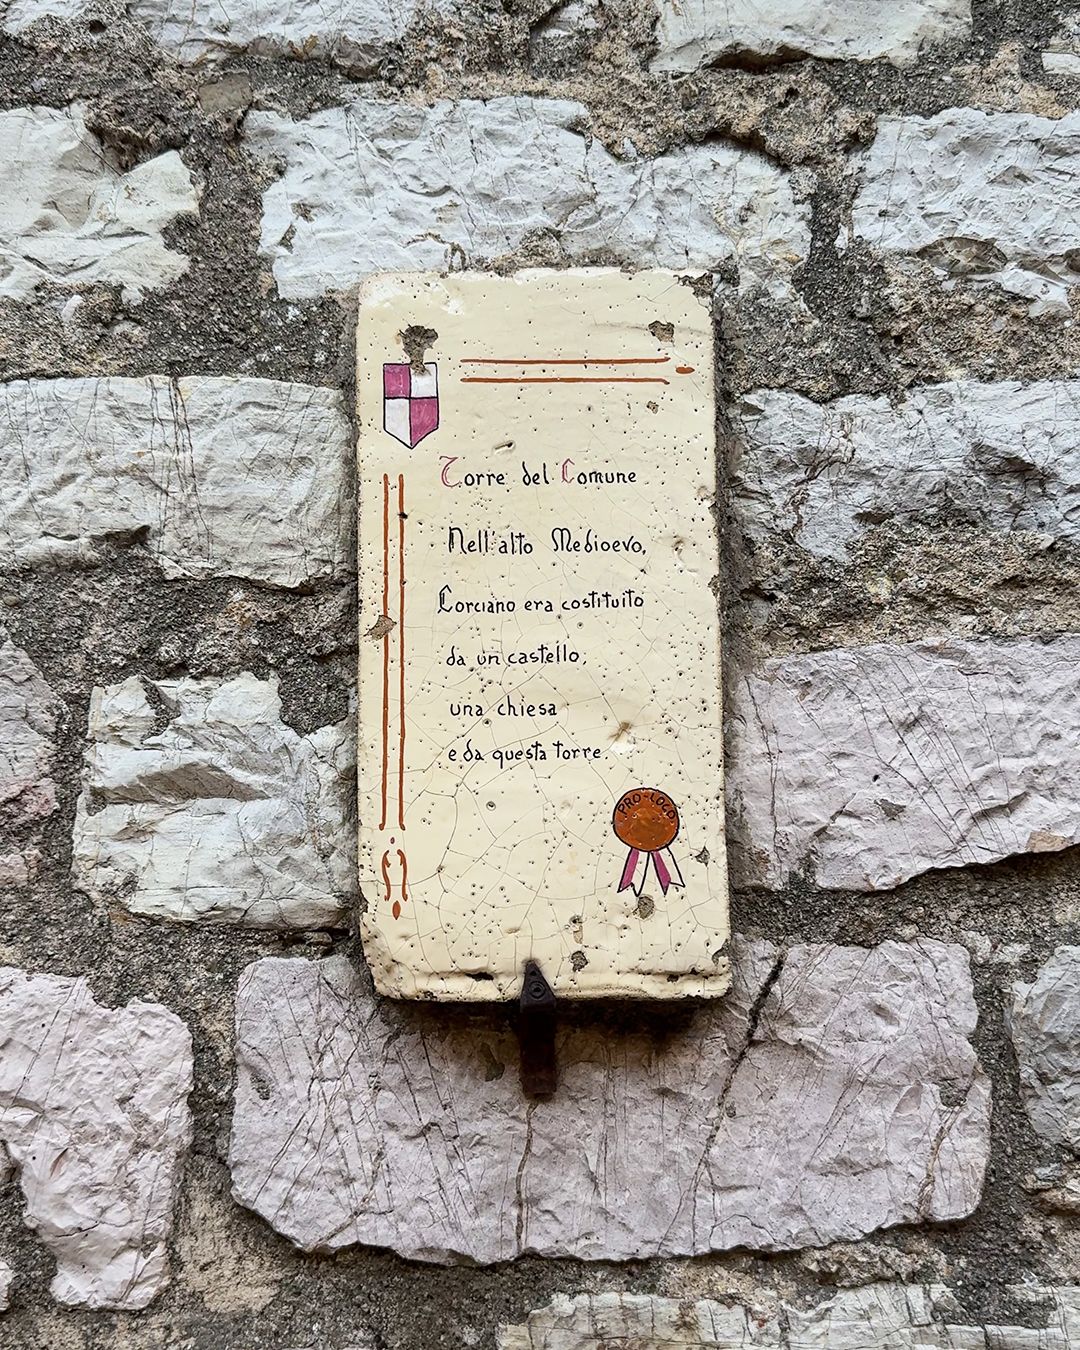 Torre del Comune
Nell'alto Medioevo,
Corciano era costituito
da un castello,
una chiesa
e da questa torre.
PRO-LOCO